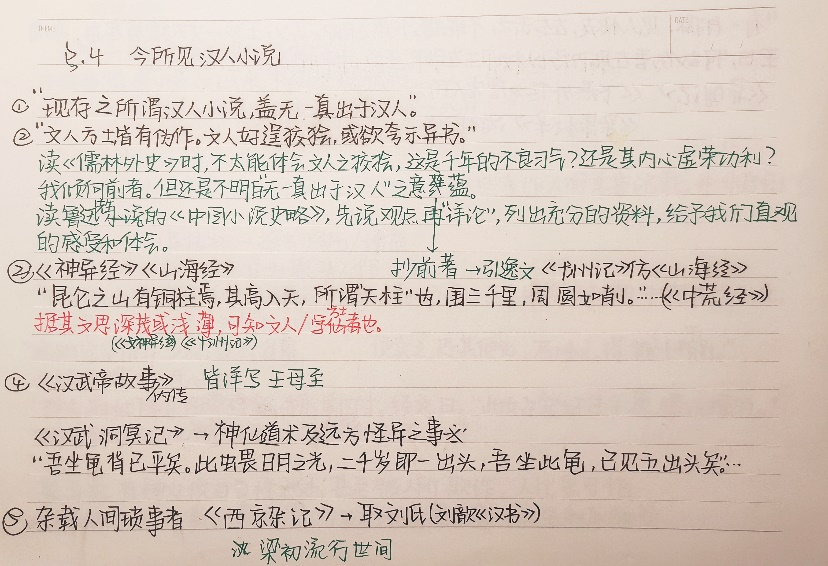 5.4 今所见汉人小说
① "现存之所谓汉人小说,盖无一真出于汉人"。
② "文人方士皆有伪作。文人好逞狡狯,或欲夸示异书。"
读《儒林外史》时,不太能体会文人之狡狯,这是千年的不良习气?还是其内心虚荣功利?
我倾向前者。但还是不明白"无一真出于汉人"之意蕴。
读鲁迅先生的《中国小说史略》,先说观点再"详论",列出充分的资料,给予我们直观
的感受和体会。
③《神异经》《山海经》 抄前者→引逸文《十洲记》仿《山海经》
"昆仑之山有铜柱焉,其高入天,所谓"天柱"也,围三千里,周圆如削。"……(《中荒经》)
据其文思深茂或浅薄,可知文人/方士者也。
(《神异经》《十洲记》)
④《汉武帝故事》 皆详写王母至
伪传
《汉武洞冥记》→神仙道术及远方怪异之事
"吾坐龟背已平矣。此虫畏日月之光,二千岁即一出头,吾坐此龟,已见五出头矣。"…
⑤ 杂载人间琐事者 《西京杂记》→取刘氏(刘歆《汉书》)
梁初流行世间